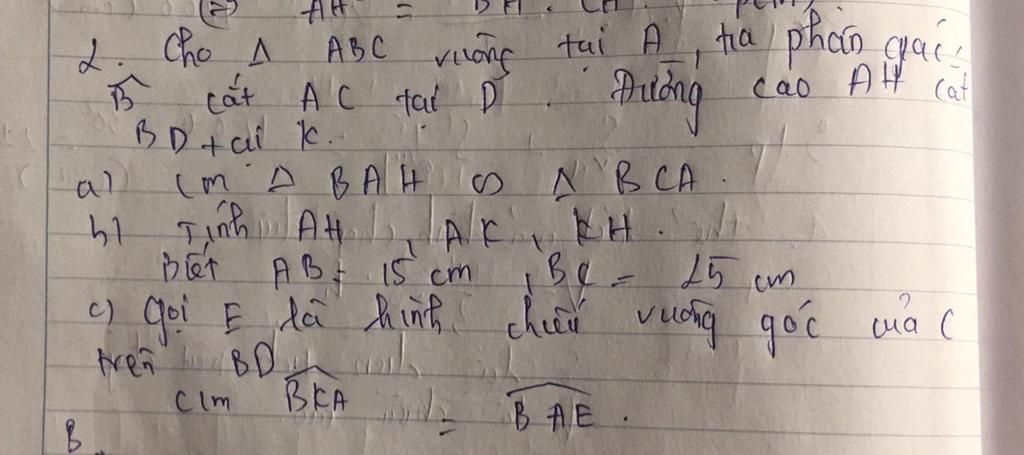 (=) AH = BH . CH
2. Cho Δ ABC vuông tại A, tia phân giác
B̂ cắt AC tại D. Đường cao AH cắt
BD tại K.
a) Cm Δ BAH ∽ Δ BCA.
b) Tính AH, AK, KH.
Biết AB = 15 cm, BC = 25 cm
c) Gọi E là hình chiếu vuông góc của C
trên BD
C/m BKA = BAE.
B